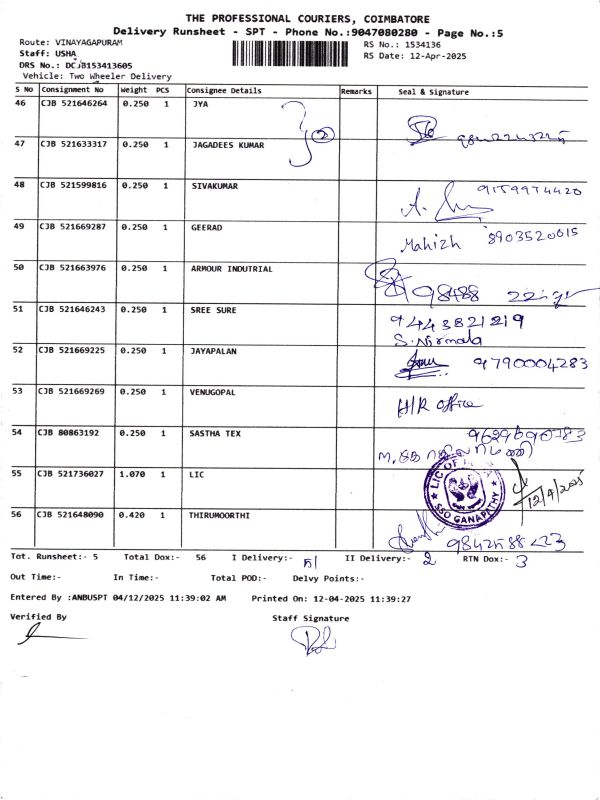 THE PROFESSIONAL COURIERS, COIMBATORE
Delivery Runsheet - SPT - Phone No.:9047080280 - Page No.:5
Route: VINAYAGAPURAM
RS No.: 1534136
Staff: USHA
RS Date: 12-Apr-2025
DRS No.: DCJB153413605
Vehicle: Two Wheeler Delivery
S No Consignment No Weight PCS Consignee Details Remarks Seal & Signature
46 CJB 521646264 0.250 1 JYA
47 CJB 521633317 0.250 1 JAGADEES KUMAR
48 CJB 521599816 0.250 1 SIVAKUMAR 9159974420
49 CJB 521669287 0.250 1 GEERAD Mahizh 8903520015
50 CJB 521663976 0.250 1 ARMOUR INDUTRIAL 98488
51 CJB 521646243 0.250 1 SREE SURE 9443821219
S.Nirmala
52 CJB 521669225 0.250 1 JAYAPALAN 9790004283
53 CJB 521669269 0.250 1 VENUGOPAL H/R office
54 CJB 80863192 0.250 1 SASTHA TEX
55 CJB 521736027 1.070 1 LIC LIC OF SSO GANAPATHY 12/4/2025
56 CJB 521648090 0.420 1 THIRUMOORTHI
Tot. Runsheet:- 5 Total Dox:- 56 I Delivery:- 51 II Delivery:- 2 RTN Dox:- 3
Out Time:- In Time:- Total POD:- Delvy Points:-
Entered By :ANBUSPT 04/12/2025 11:39:02 AM Printed On: 12-04-2025 11:39:27
Verified By Staff Signature